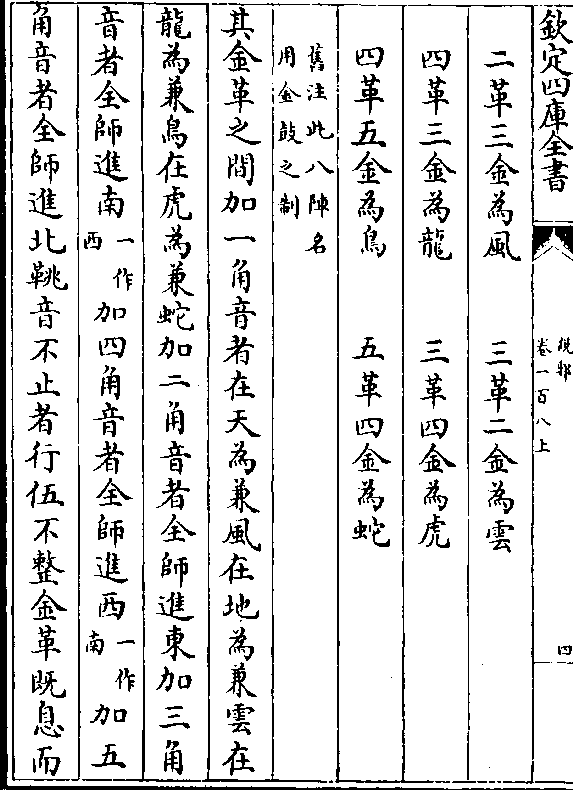 欽定四庫全書
説郛
卷一百八上
四
二革三金為風　三革二金為雲
四革三金為龍　三革四金為虎
四革五金為鳥　五革四金為蛇
舊注此八陣名
用金鼓之制
其金革之間加一角音者在天為兼風在地為兼雲在
龍為兼鳥在虎為兼蛇加二角音者全師進東加三角
音者全師進南一作西加四角音者全師進西一作南加五
角音者全師進北鞉音不止者行伍不整金革既息而